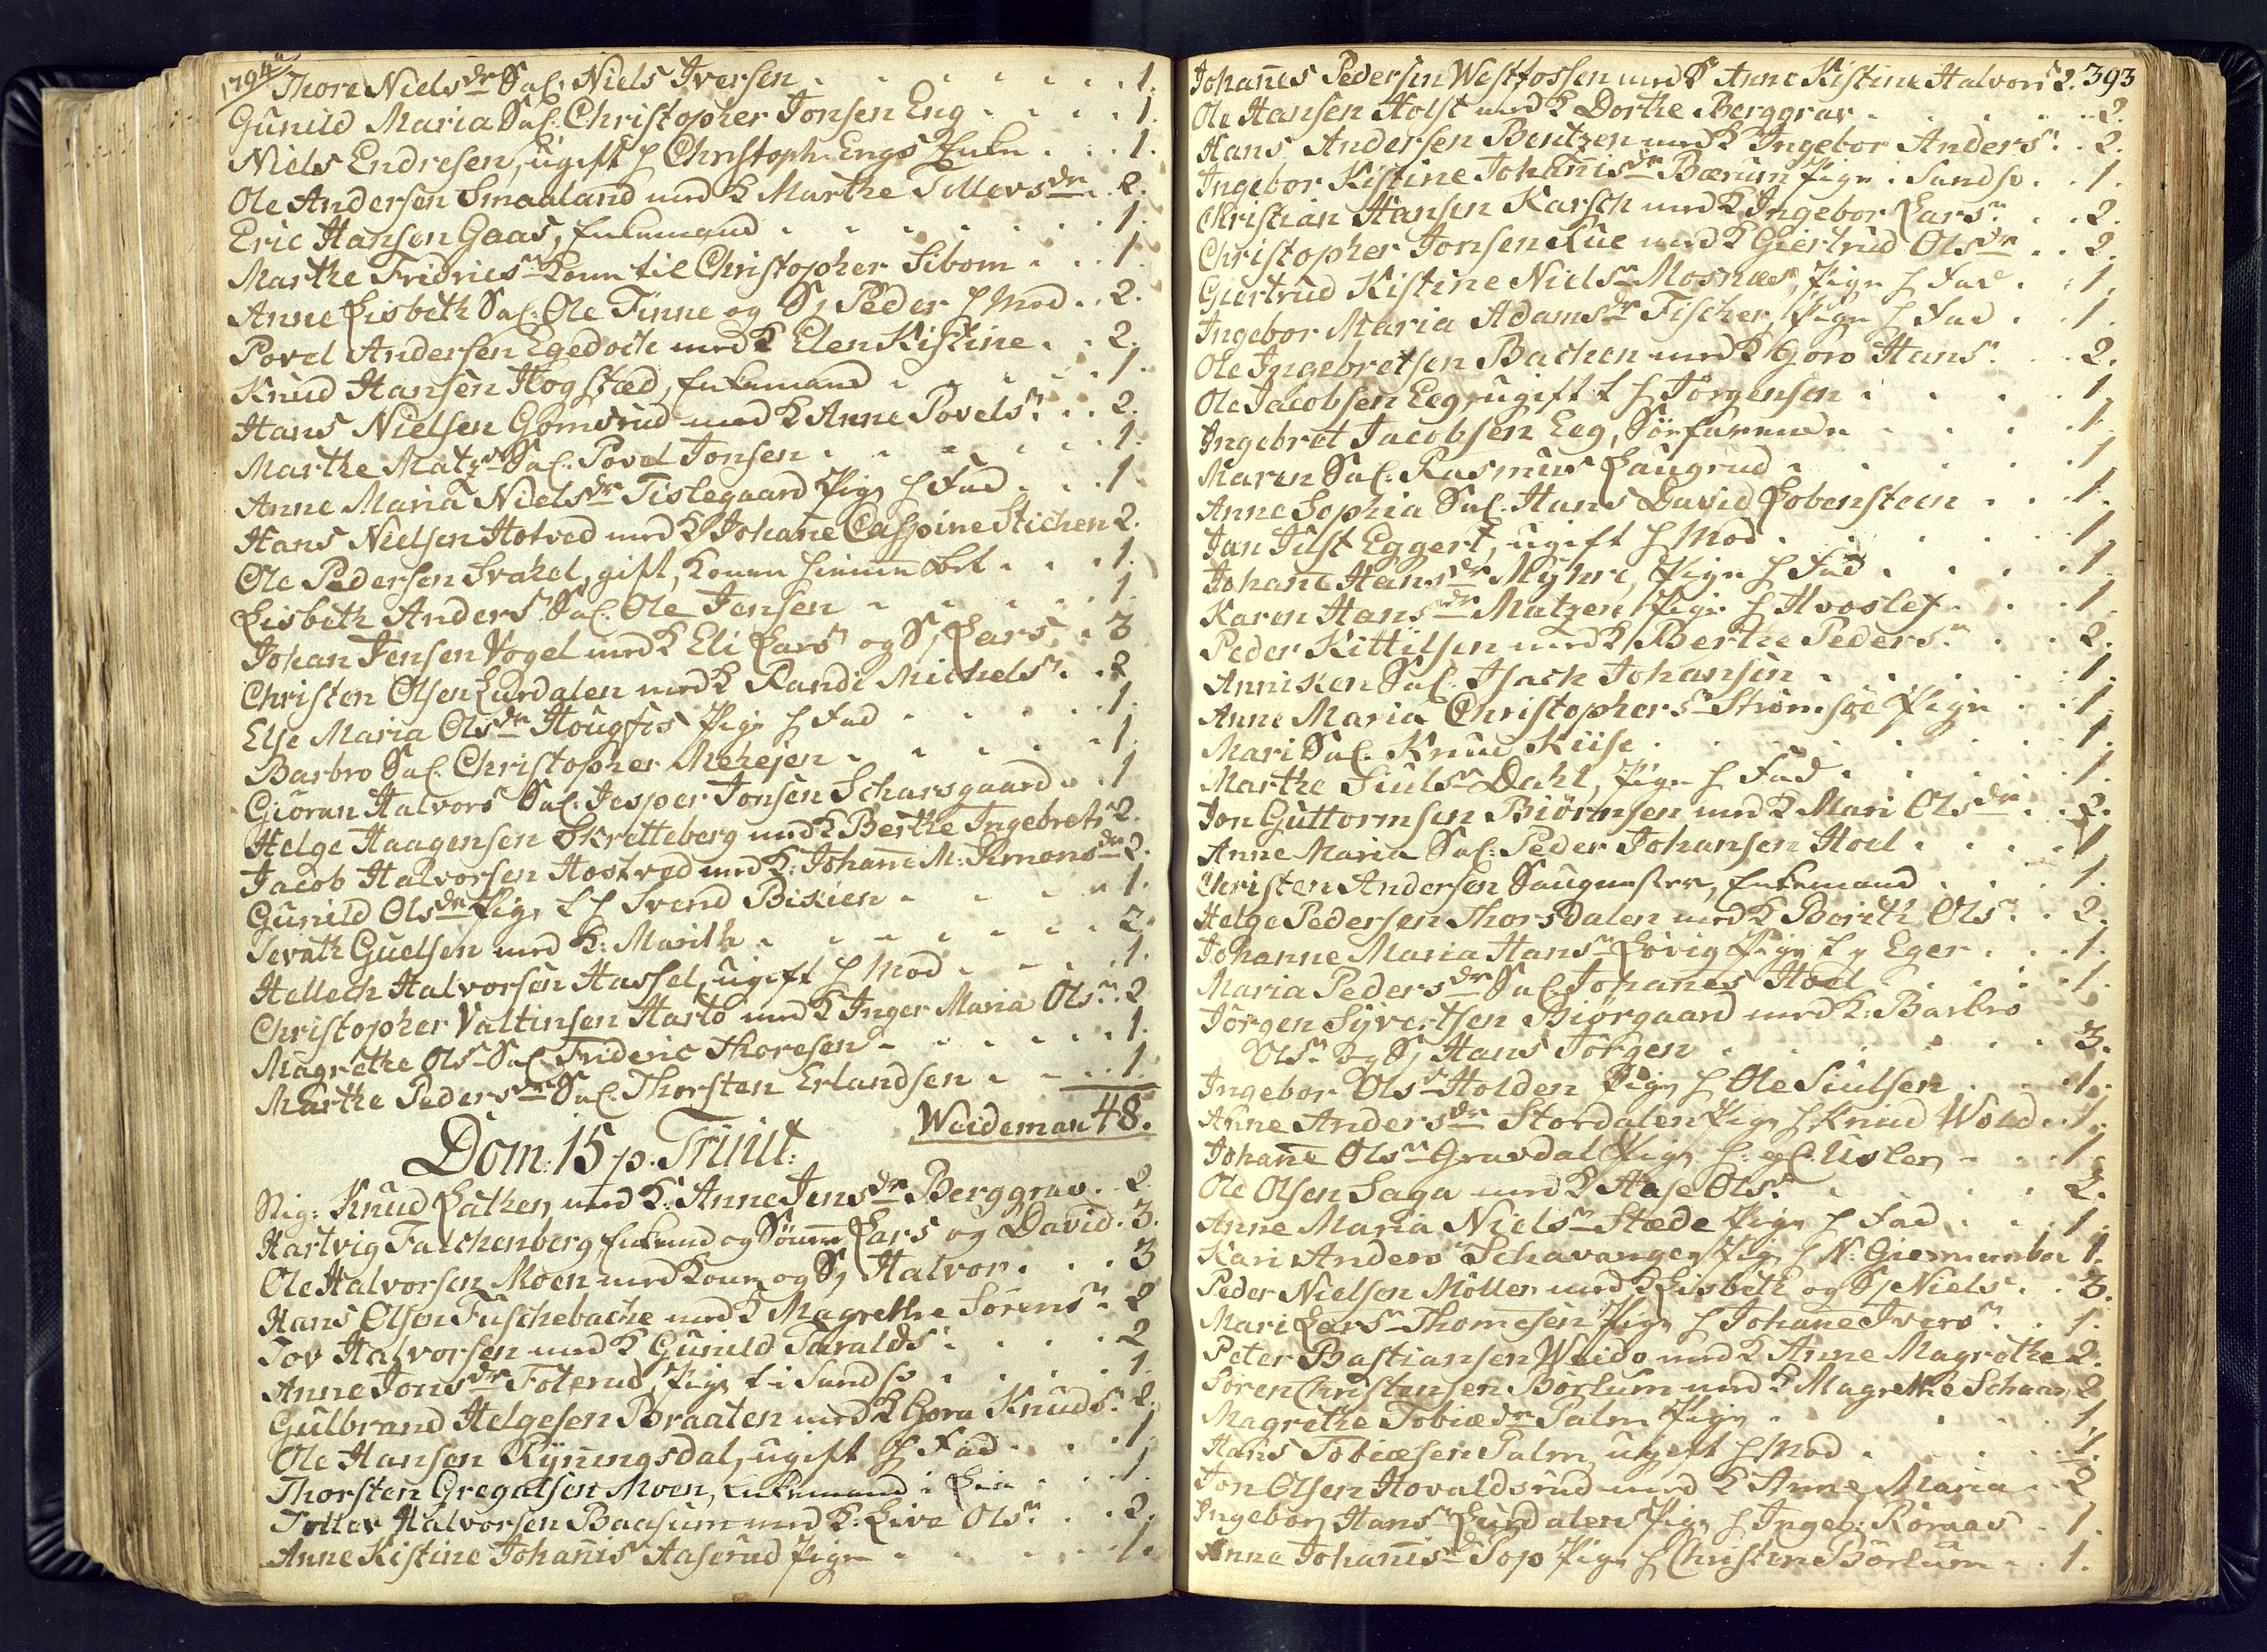 1794
Thore Nielsdr Sal. Niels Iversen . . . 1.
Gunild Maria Sal. Christopher Jonsen Eng . . . 1.
Niels Endresen, ugift h Christoph. Engs Enke . . . 1.
Ole Andersen Smaaland med K Marthe Tollevsdr . 2.
Eric Hansen Gaas, Enkemand . . . 1.
Marthe Fridrics Kone til Christopher Sibom . . . 1.
Anne Lisbeth Sal. Ole Finne og S. Peder h Mod . . 2.
Povel Andersen Egedock med K Elen Kistine . . 2.
Knud Hansen Hogstad, Enkemand . . . 1.
Hans Nielsen Gomsrud med K Anne Povels . . 2.
Marthe Matzdr Sal. Povel Jonsen . . . 1.
Anne Maria Nielsdr Tislegaard Pige h Fad . . . 1
Hans Nielsen Hotved med K Johane Caspine Stichen 2.
Ole Pedersen Svahel, gift, Konen . . . 1.
Lisbeth Anders Sal. Ole Jensen . . . 1.
Johan Jensen Vogel med K Eli Lars og S. Lars . 3
Christen Olsen Lurdalen med K Randi Michels . . 2
Else Maria Olsdr Hougfos Pige h Fad . . . 1.
Barbro Sal. Christopher Mehejen . . . 1.
Gioran Halvors Sal. Jesper Jonsen Scharsgaard . . 1
Helge Haagensen Skretteberg med K Berthe Ingebrets 2.
Jacob Halvorsen Hostved med K. Johane M. Simonsdr 2.
Gunild Olsdr Pige t h Svend Bikien . . . 1.
Sevath Guelsen med K. Marith . . . 2.
Hellech Halvorsen Hassel, ugift h Mod . . . 1.
Christopher Valtinsen Harlo med K Inger Maria Ols . 2
Magrethe Ols Sal. Frideric Thoresen . . . 1.
Marthe Pedersdr Sal. Thorsten Erlandsen . . . 1.
Weideman 48.
Dom: 15 p. Trinit:
Sig: Knud Lathen med K. Anne Jensdr Berggrav . . 2.
Hartvig Falchenberg Enkemd og Sönner Lars og David . 3.
Ole Halvorsen Moen med Kone og S. Halvor . . . 3
Hans Olsen Fuschebache med K Magrethe Sörens . 2
Tov Halvorsen med K Gunild Taralds . . . 2
Anne Jonsdr Foterud, Pige t i Sands . . . 1.
Gulbrand Helgesen Braaten med K Goro Knuds . 2.
Ole Hansen Ryningsdal, ugift h Fad . . . 1.
Thorsten Gregalsen Moen, Enkemand i Lie . . . 1.
Tollev Halvorsen Baasum med K. Live Ols . . . 2.
Anne Kistine Johanis Aaserud Pige . . . 1.
393
Johanes Pedersen Westfossen med K Anne Kistine Halvors 2.
Ole Hansen Holst med K Dorthe Berggrav . . . 2.
Hans Andersen Bentzen med K Ingebor Anders . . 2.
Ingebor Kistine Johanisdr Bærum Pige i Sands . . 1.
Christian Hansen Karsch med K Ingebor Lars . . . 2.
Christopher Jonsen Lue med K Giertrud Olsdr . . 2.
Giertrud Kistine Niels Mosnæs, Pige h Fad . . 1.
Ingebor Maria Adamsdr Fischer, Pige h Fad . . . 1.
Ole Ingebretsen Bachen med K Goro Hans . . 2.
Ole Jacobsen Eeg, ugift t h Jörgensen . . . 1
Ingebret Jacobsen Eeg, Söefarende . . . 1.
Maren Sal. Rasmus Laugrud . . . 1
Anne Sophia Sal. Hans David Lobensteen . . . 1.
Jan Julst Eggert, ugift h Mod . . . 1.
Johane Hansdr Myhre, Pige h Fad . . . 1.
Karen Hansdr Matzen Pige h Hvoslef . . . 1.
Peder Kittilsen med K Berthe Peders . . . 2.
Anniken Sal. Isach Johansen . . . 1.
Anne Maria Christophers Strömsöe Pige . . . 1.
Mari Sal. Knud Kiise . . . 1.
Marthe Siuls Dahl, Pige h Fad . . . 1.
Jon Guttormsen Biörnsen med K Mari Olsdr . . 2.
Anne Maria Sal. Peder Johansen Hoel . . . 1
Christen Andersen Saugmester, Enkemand . . . 1.
Helge Pedersen Thorsdalen med K Berith Ols . . 2.
Johanne Maria Hans Lövig Pige t p Eger . . . 1.
Maria Pedersdr Sal. Johanes Hoel . . . 1.
Jörgen Syvertsen Biörgaard med K. Barbro
Ols og S. Hans Jörgen . . . 3.
Ingebor Ols Holden Pige h Ole Siulsen . . . 1.
Anne Andersdr Stordalen Pige h Knud Wold . . 1.
Johane Ols Gravdal Pige h . Uslen . . . 1.
Ole Olsen Saga med K Aase Ols . . . 2.
Anne Maria Niels Stæde Pige h Fad . . . 1.
Kari Anders Schavanger Pige h N. 1.
Peder Nielsen Möller med K Lisbeth og S. Niels . . 3.
Mari Lars Thomesen Pige h Johane Ivers . . 1.
Peter Bastiansen Weido med K Anne Magrethe 2.
Sören Christensen Börlum med K Magrethe Schaar 2
Magrethe Tobiædr Palm Pige . . . 1.
Hans Tobiæsen Palm, ugift h Mod . . . 1.
Jon Olsen Hovaldsrud med K Anne Maria . . 2
Ingebor Hans Lurdalen Pige h Ingeb: Römes . 1.
Anne Johanis Sop Pige h Christen Börlum . . 1.